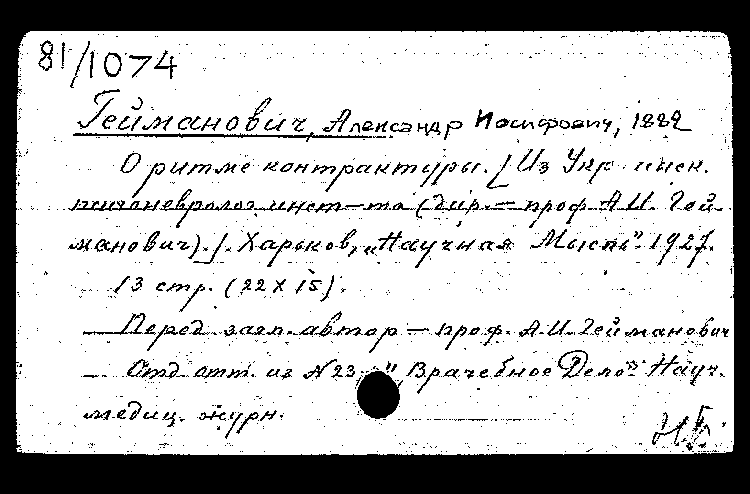 81/1074
Гейманович, Александр Иосифович, 1882
О ритме контрактуры. [Из Укр.
психоневролог. инст-та (дир. — проф. А.И. Гей-
манович).]. Харьков, „Научная Мысль". 1927.
13 стр. (22 х 15).
— Перед загл. автор — проф. А.И. Гейманович
— Отд. отт. из №23 „Врачебное Дело" Науч.
медиц. журн.